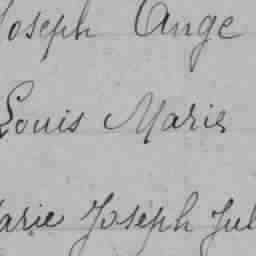 Joseph Ange
Louis Marie
Marie Joseph Jul